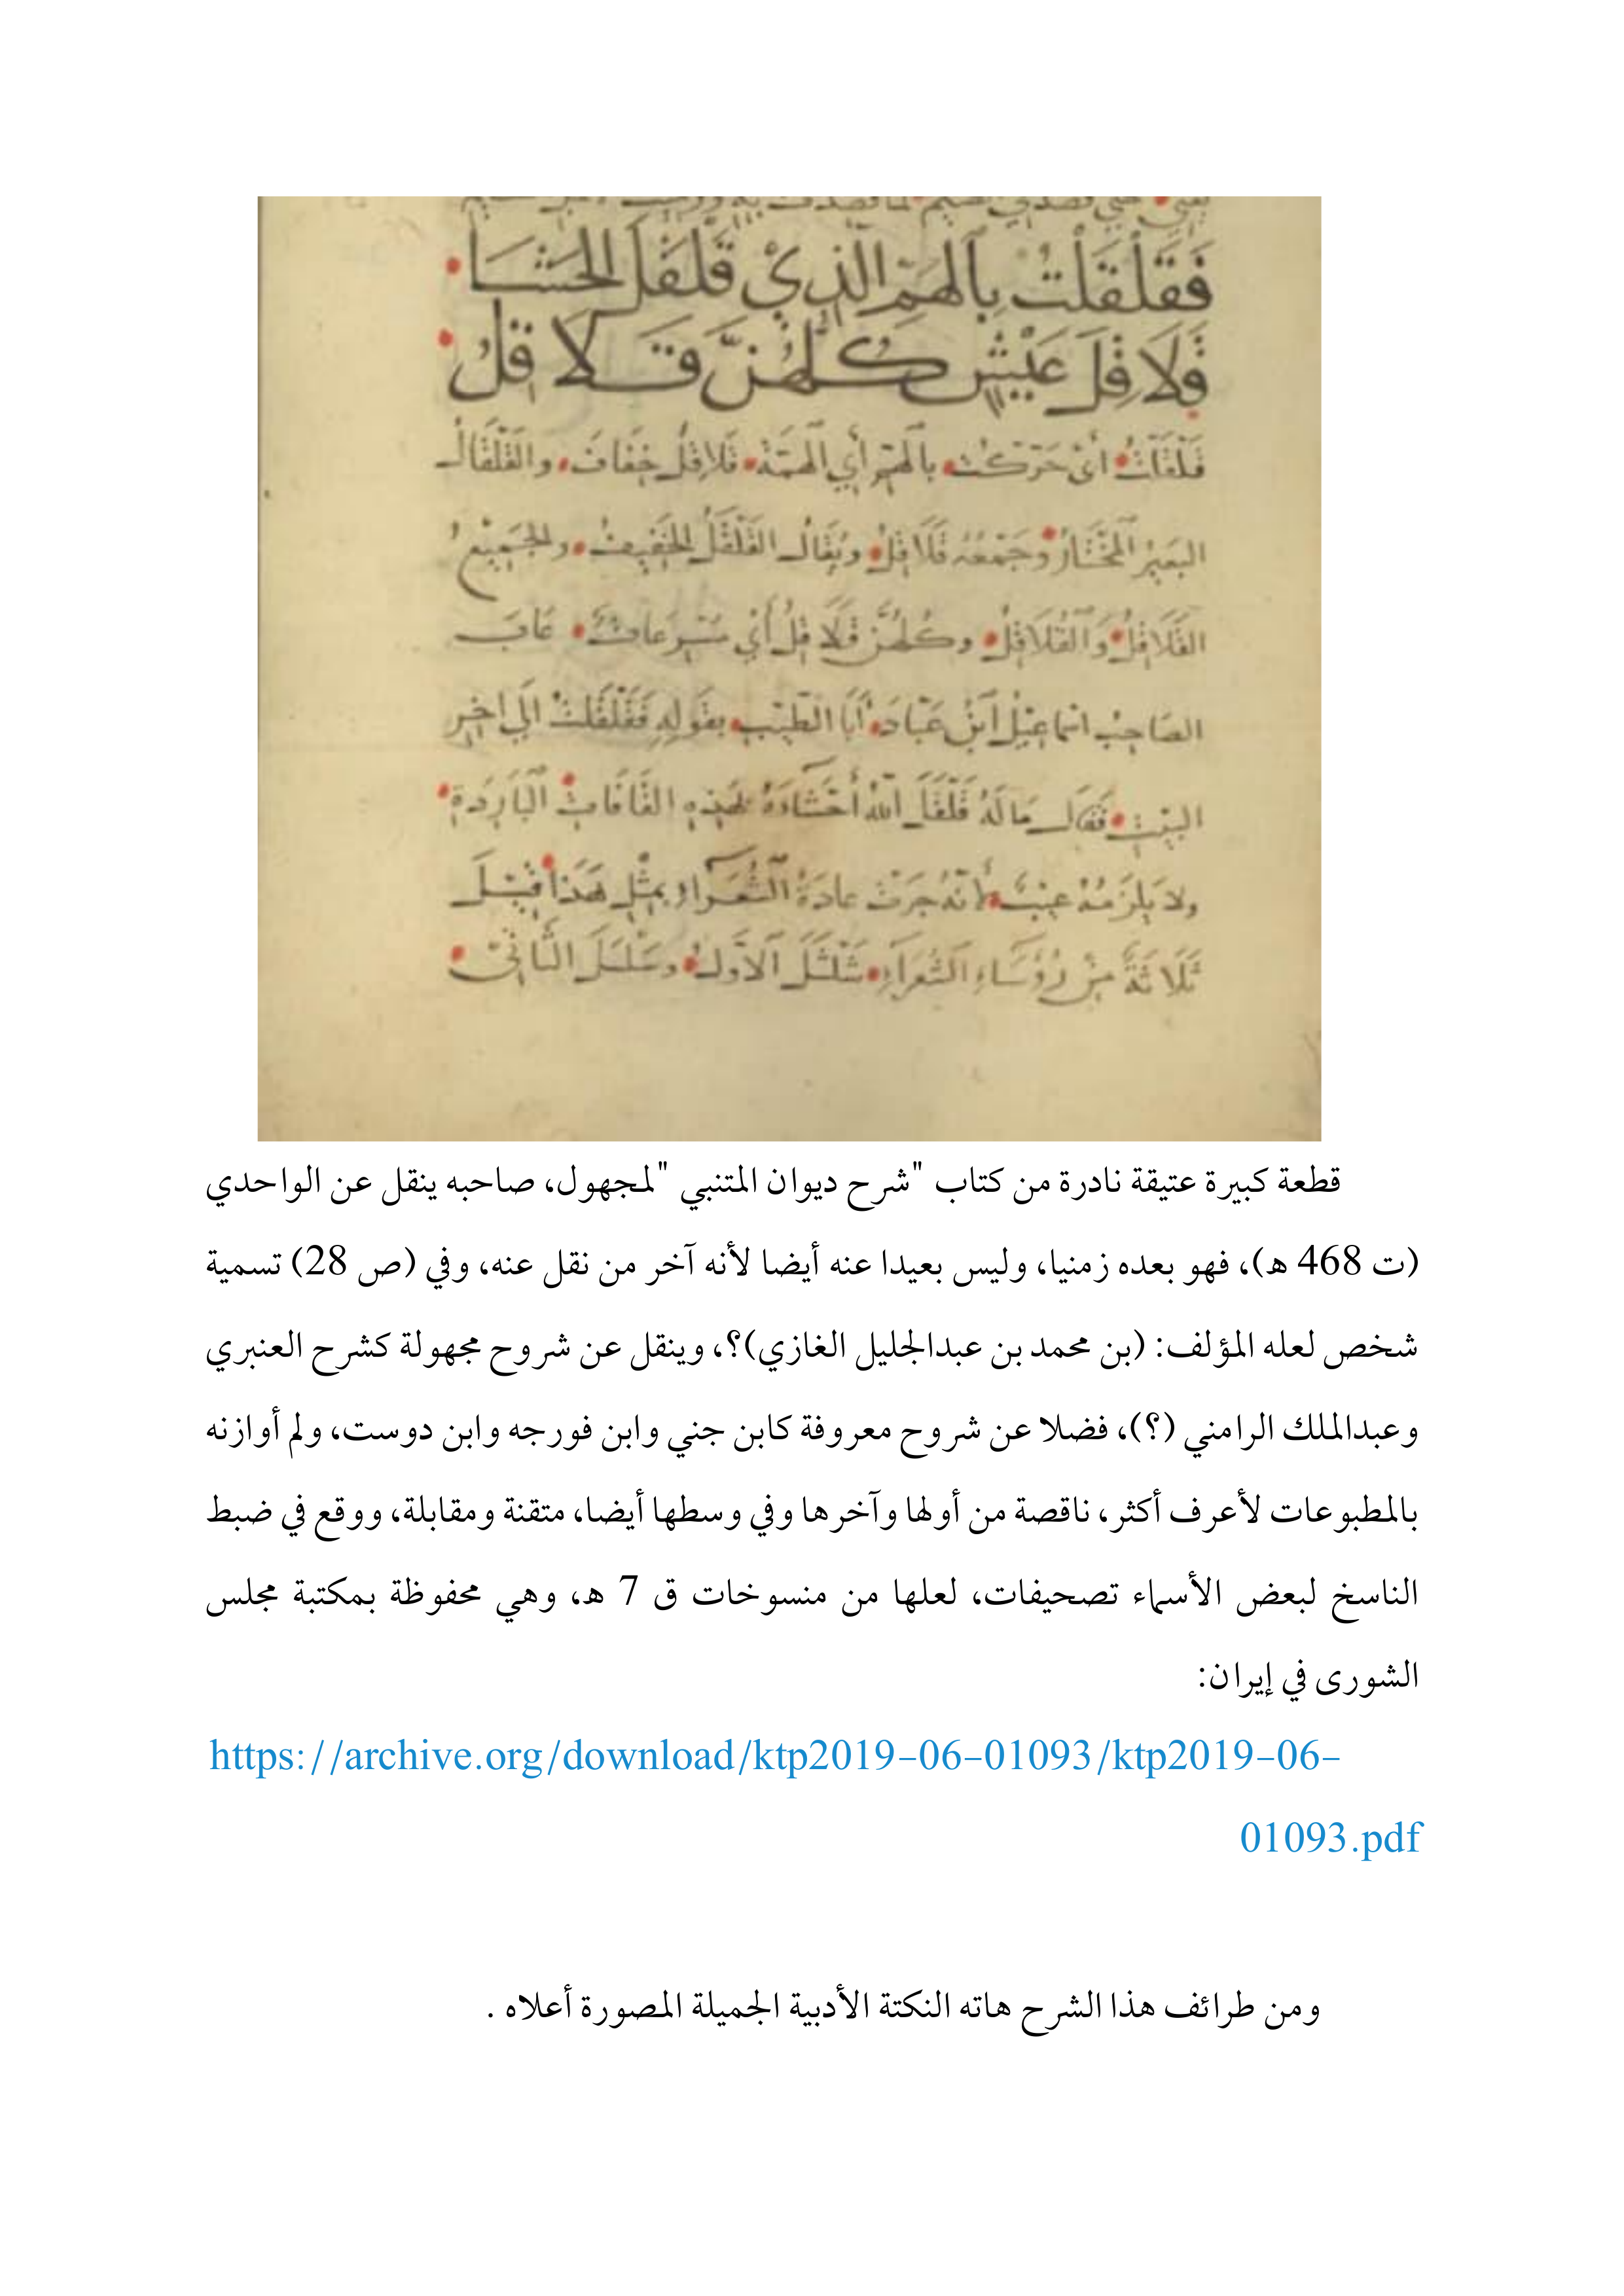 فَقَلْقَلْتُ بِالْهَمِّ الَّذِيْ قَلْقَلَ الْحَشَا
قَلَاقِلَ عَيْشٍ كُلُّهُنَّ قَلَاقِلُ
قَلْقَلْتُ أيْ حَرَّكْتُ بالهَمّ أي الهمَّة قَلَاقِلُ خِفَافَ والقَلْقَالُ
البَعِيْرِ المُخْتَارُ وجَمْعُهُ قَلَاقِلُ ويُقَالُ القَلْقَلُ الخَفِيفُ والجَمِيْعُ
القَلَاقِلُ وَالقُلَاقِلُ وكُلُّهُنَّ قَلَاقِلُ أيْ مُسْرِعاتٌ عَابَ
الصَاحِبُ اسْمَاعِيْلُ ابْنُ عَبَّادَ أَبَا الطَيِّبِ بِقَوْلِهِ فَقَلْقَلْتُ الى اخِرِ
البَيْتِ فَقَالَ مَالَهُ قَلْقَلَ اللهُ أحْشَاءَهُ بِهَذِهِ القَافَاتِ البَارِدَةِ
ولا يَلْزَمُهُ عَيْبٌ لأنَّهُ جَرَتْ عَادَةُ الشُعَرَاءِ بِمِثْلِ هَذَا قَبْلَ
ثَلَاثَةٌ مِنْ رُؤَسَاءِ الشُعَرَاءِ شَلْشَلَ الأوَّلُ وسَلْسَلَ الثَّانِيْ
قطعة كبيرة عتيقة نادرة من كتاب "شرح ديوان المتنبي "لمجهول، صاحبه ينقل عن الواحدي
(ت 468 هـ)، فهو بعده زمنيا، وليس بعيدا عنه أيضا لأنه آخر من نقل عنه، وفي (ص 28) تسمية
شخص لعله المؤلف: (بن محمد بن عبدالجليل الغازي)؟، وينقل عن شروح مجهولة كشرح العنبري
وعبدالملك الرامني (؟)، فضلا عن شروح معروفة كابن جني وابن فورجه وابن دوست، ولم أوازنه
بالمطبوعات لأعرف أكثر، ناقصة من أولها وآخرها وفي وسطها أيضا، متقنة ومقابلة، ووقع في ضبط
الناسخ لبعض الأسماء تصحيفات، لعلها من منسوخات ق 7 هـ، وهي محفوظة بمكتبة مجلس
الشورى في إيران:
https://archive.org/download/ktp2019-06-01093/ktp2019-06-
01093.pdf
ومن طرائف هذا الشرح هاته النكتة الأدبية الجميلة المصورة أعلاه .